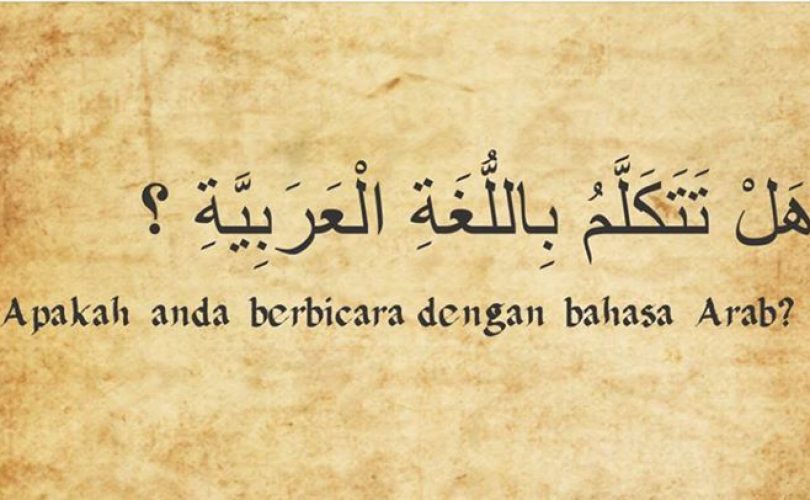 هَلْ تَتَكَلَّمُ بِاللُّغَةِ الْعَرَبِيَّةِ ؟
Apakah anda berbicara dengan bahasa Arab?